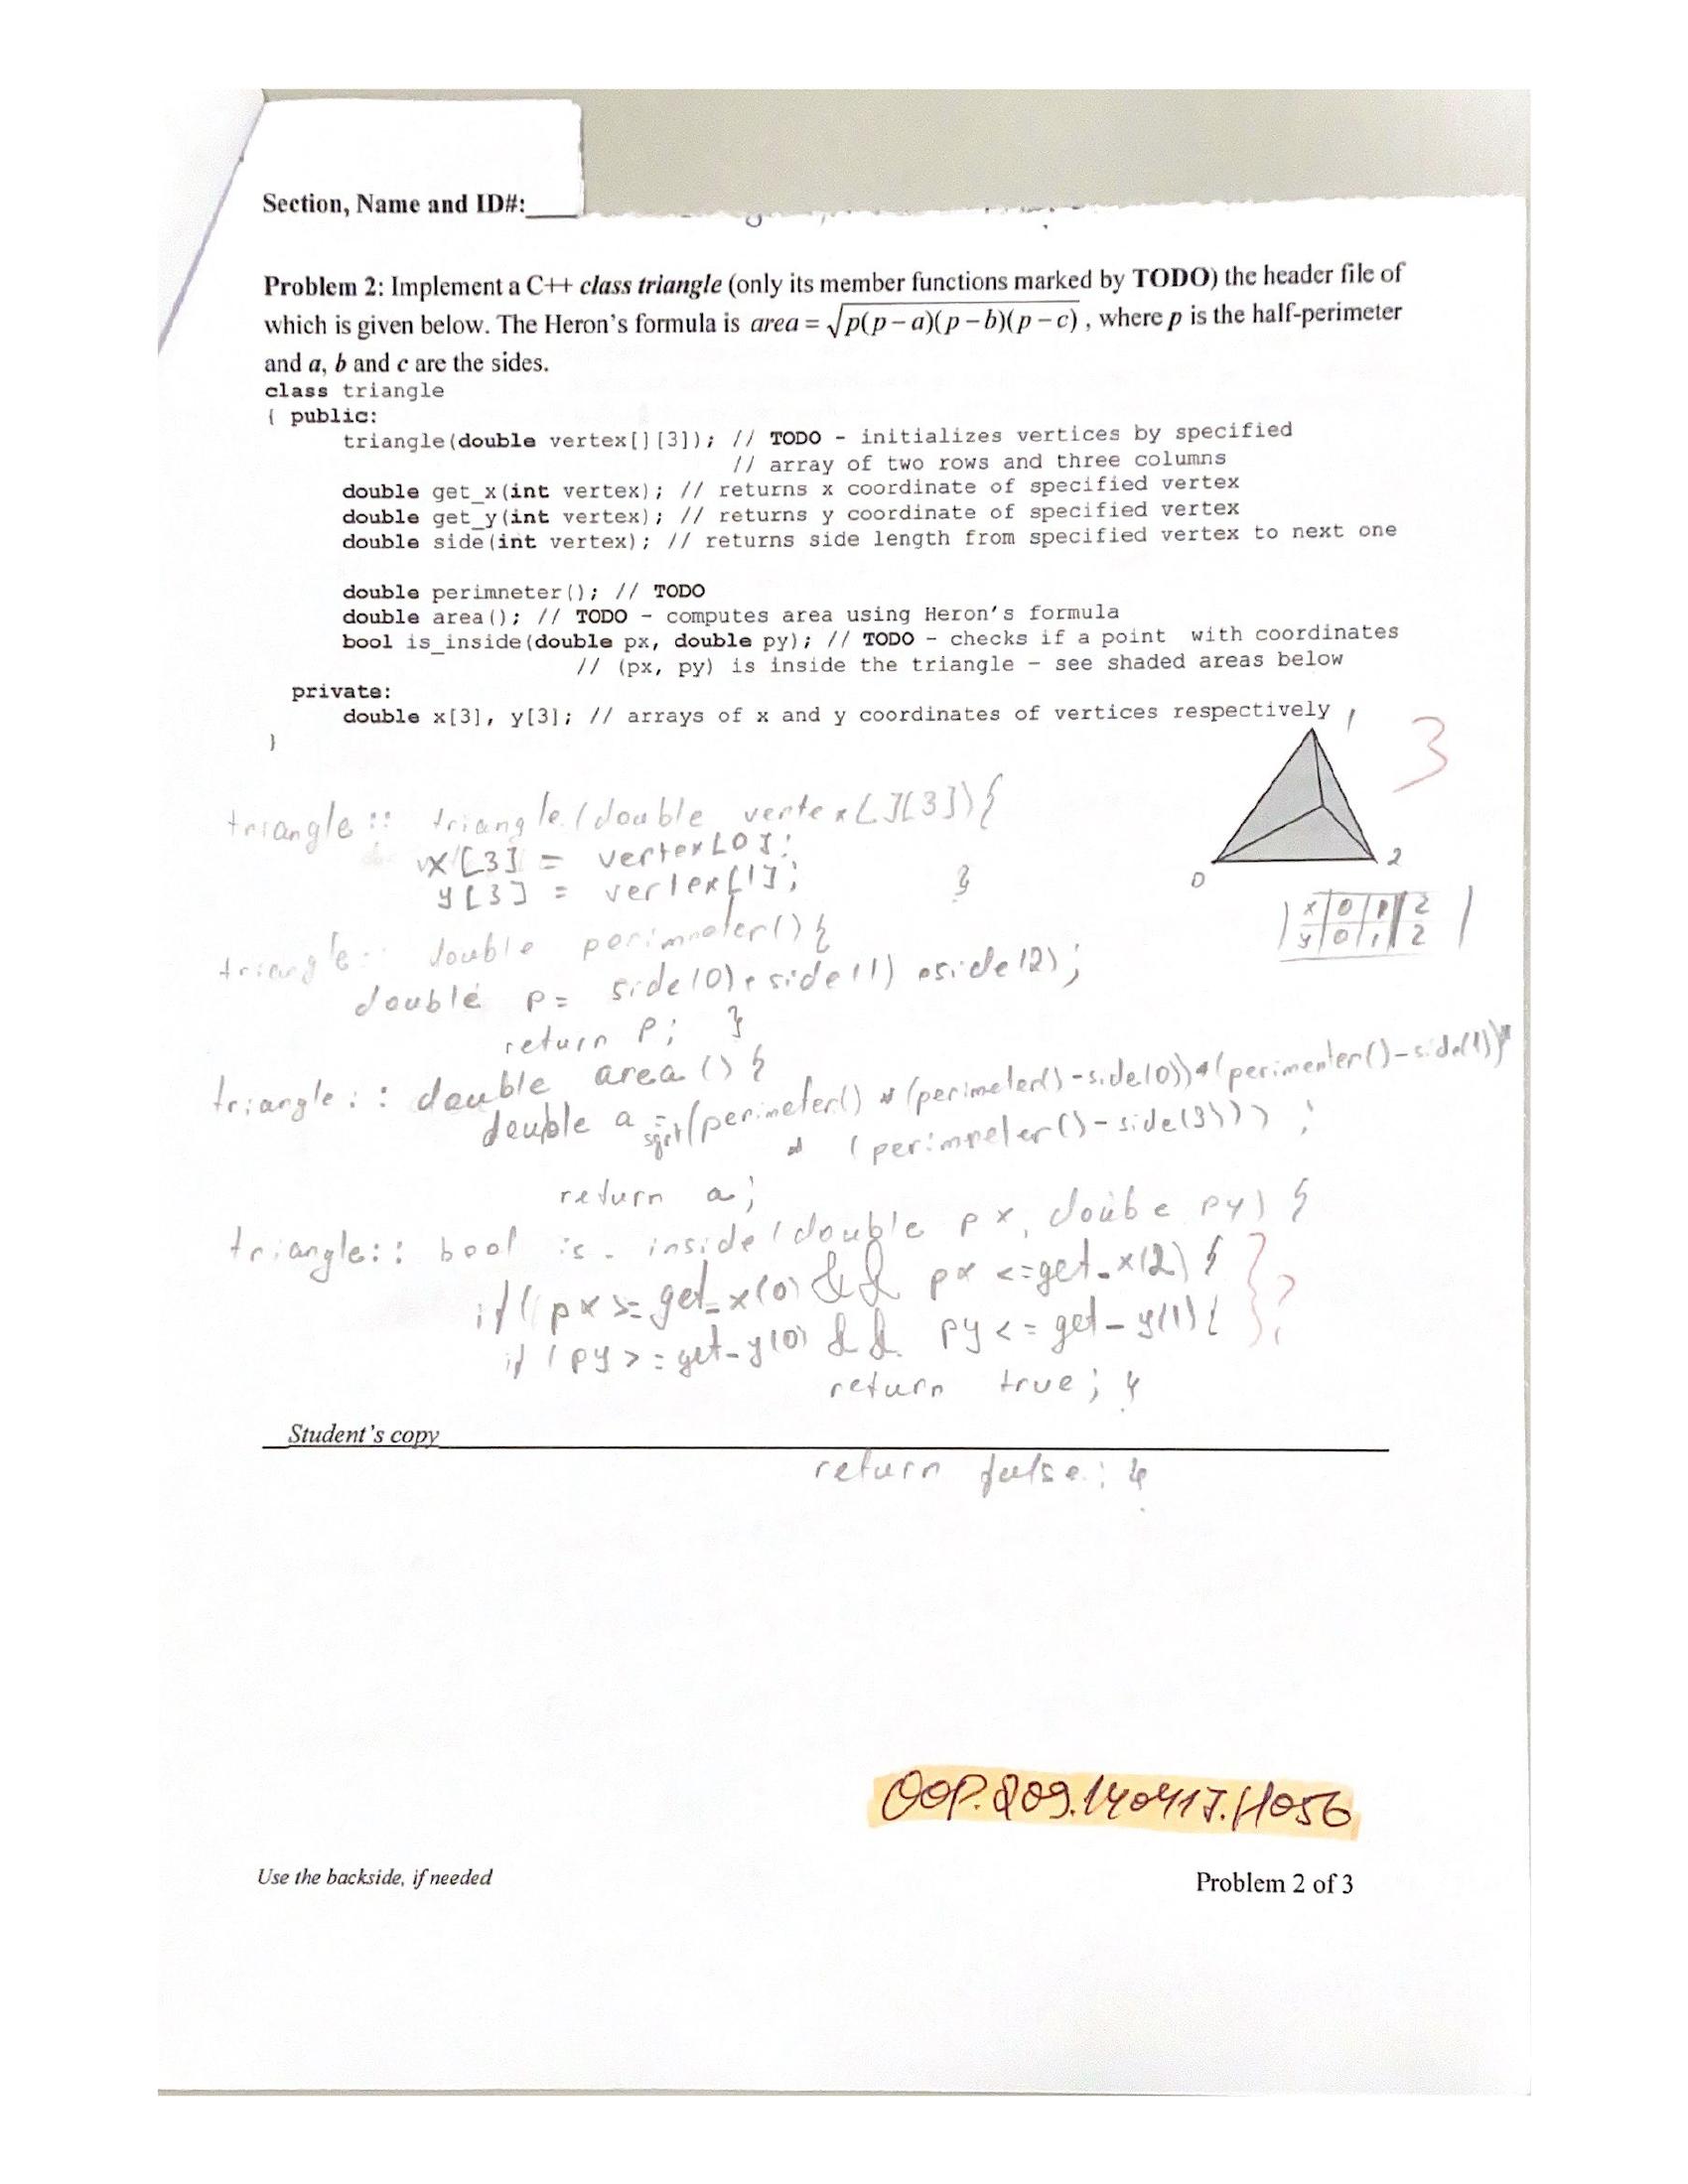 Section, Name and ID#:
Problem 2: Implement a C++ class triangle (only its member functions marked by TODO) the header file of
which is given below. The Heron's formula is area = √p(p – a)(p – b)(p – c) , where p is the half-perimeter
and a, b and c are the sides.
class triangle
{ public:
triangle(double vertex[][3]); // TODO - initializes vertices by specified
// array of two rows and three columns
double get_x(int vertex); // returns x coordinate of specified vertex
double get_y(int vertex); // returns y coordinate of specified vertex
double side(int vertex); // returns side length from specified vertex to next one
double perimneter(); // TODO
double area(); // TODO - computes area using Heron's formula
bool is_inside(double px, double py); // TODO - checks if a point with coordinates
// (px, py) is inside the triangle - see shaded areas below
private:
double x[3], y[3]; // arrays of x and y coordinates of vertices respectively
}
1
3
0
2
x 0 1 2
y 0 1 2
triangle:: triangle(double vertex[][3]){
x[3] = vertex[0];
y[3] = vertex[1]; }
triangle:: double perimneter(){
double p= side(0)+side(1)+side(2);
return p; }
triangle:: double area(){
double a = sqrt(perimeter() * (perimeter()-side(0))*(perimenter()-side(1))*
* (perimneter()-side(3)));
return a;
triangle:: bool is_inside(double px, doube py) {
if(px >= get_x(0) && px <= get_x(2) {
if (py >= get_y(0) && py <= get_y(1){
?
return true; }
Student's copy
return false; }
OOP.Q09.140417.H056
Use the backside, if needed
Problem 2 of 3